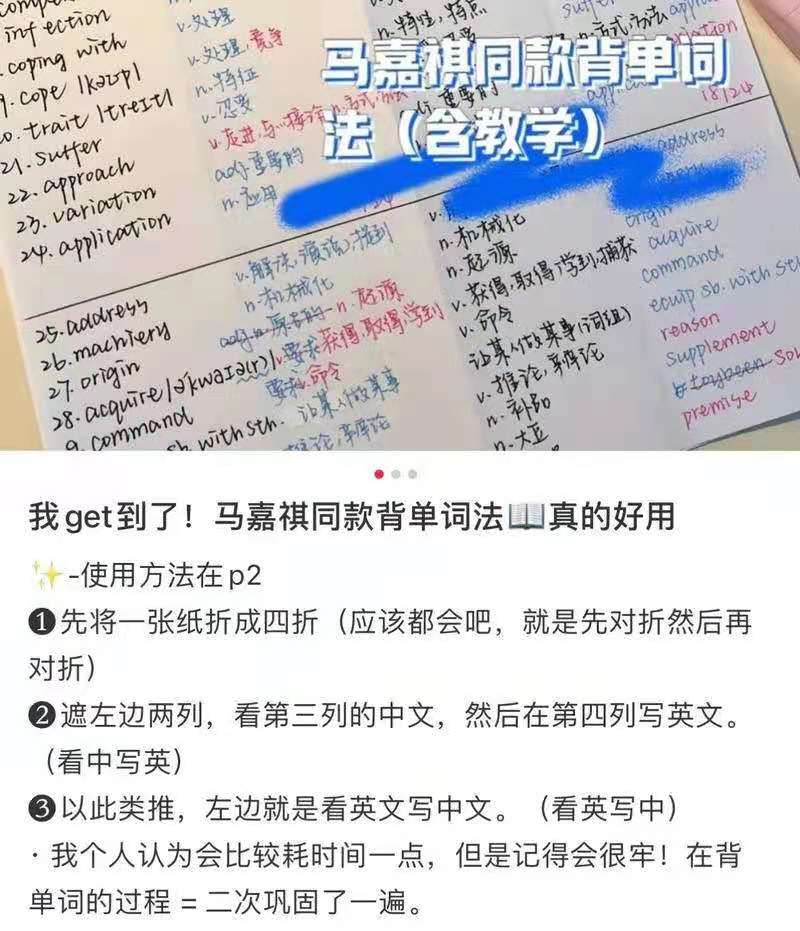 infection
coping with
9. cope /kəʊp/
trait /treɪt/
21. suffer
22. approach
23. variation
24. application
25. address
26. machiery
27. origin
28. acquire /ə'kwaɪə(r)/
9. command
sb. with sth.
v.处理
v.处理,竞争
n.特征
v.忍受
adj.重要的
n.应用
n.机械化
要求,命令
让某人做某事
推论,辩论
n.特性,特点
马嘉祺同款背单词
法（含教学）
n.机械化
n.起源
v.获得,取得,学到,捕获
v.命令
让某人做某事(词组)
v.推论,辩论
n.补助
n.大豆
suffer
18/24
address
origin
acquire
command
equip sb. with sth
reason
supplement
premise
我get到了！马嘉祺同款背单词法📖真的好用
✨-使用方法在p2
❶先将一张纸折成四折（应该都会吧，就是先对折然后再
对折）
❷遮左边两列，看第三列的中文，然后在第四列写英文。
（看中写英）
❸以此类推，左边就是看英文写中文。（看英写中）
· 我个人认为会比较耗时间一点，但是记得会很牢！在背
单词的过程 = 二次巩固了一遍。